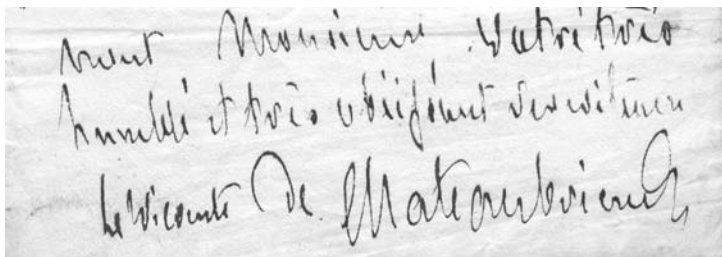 Monsieur votre très
humble et très obéissant serviteur
le Vicomte de Chateaubriand